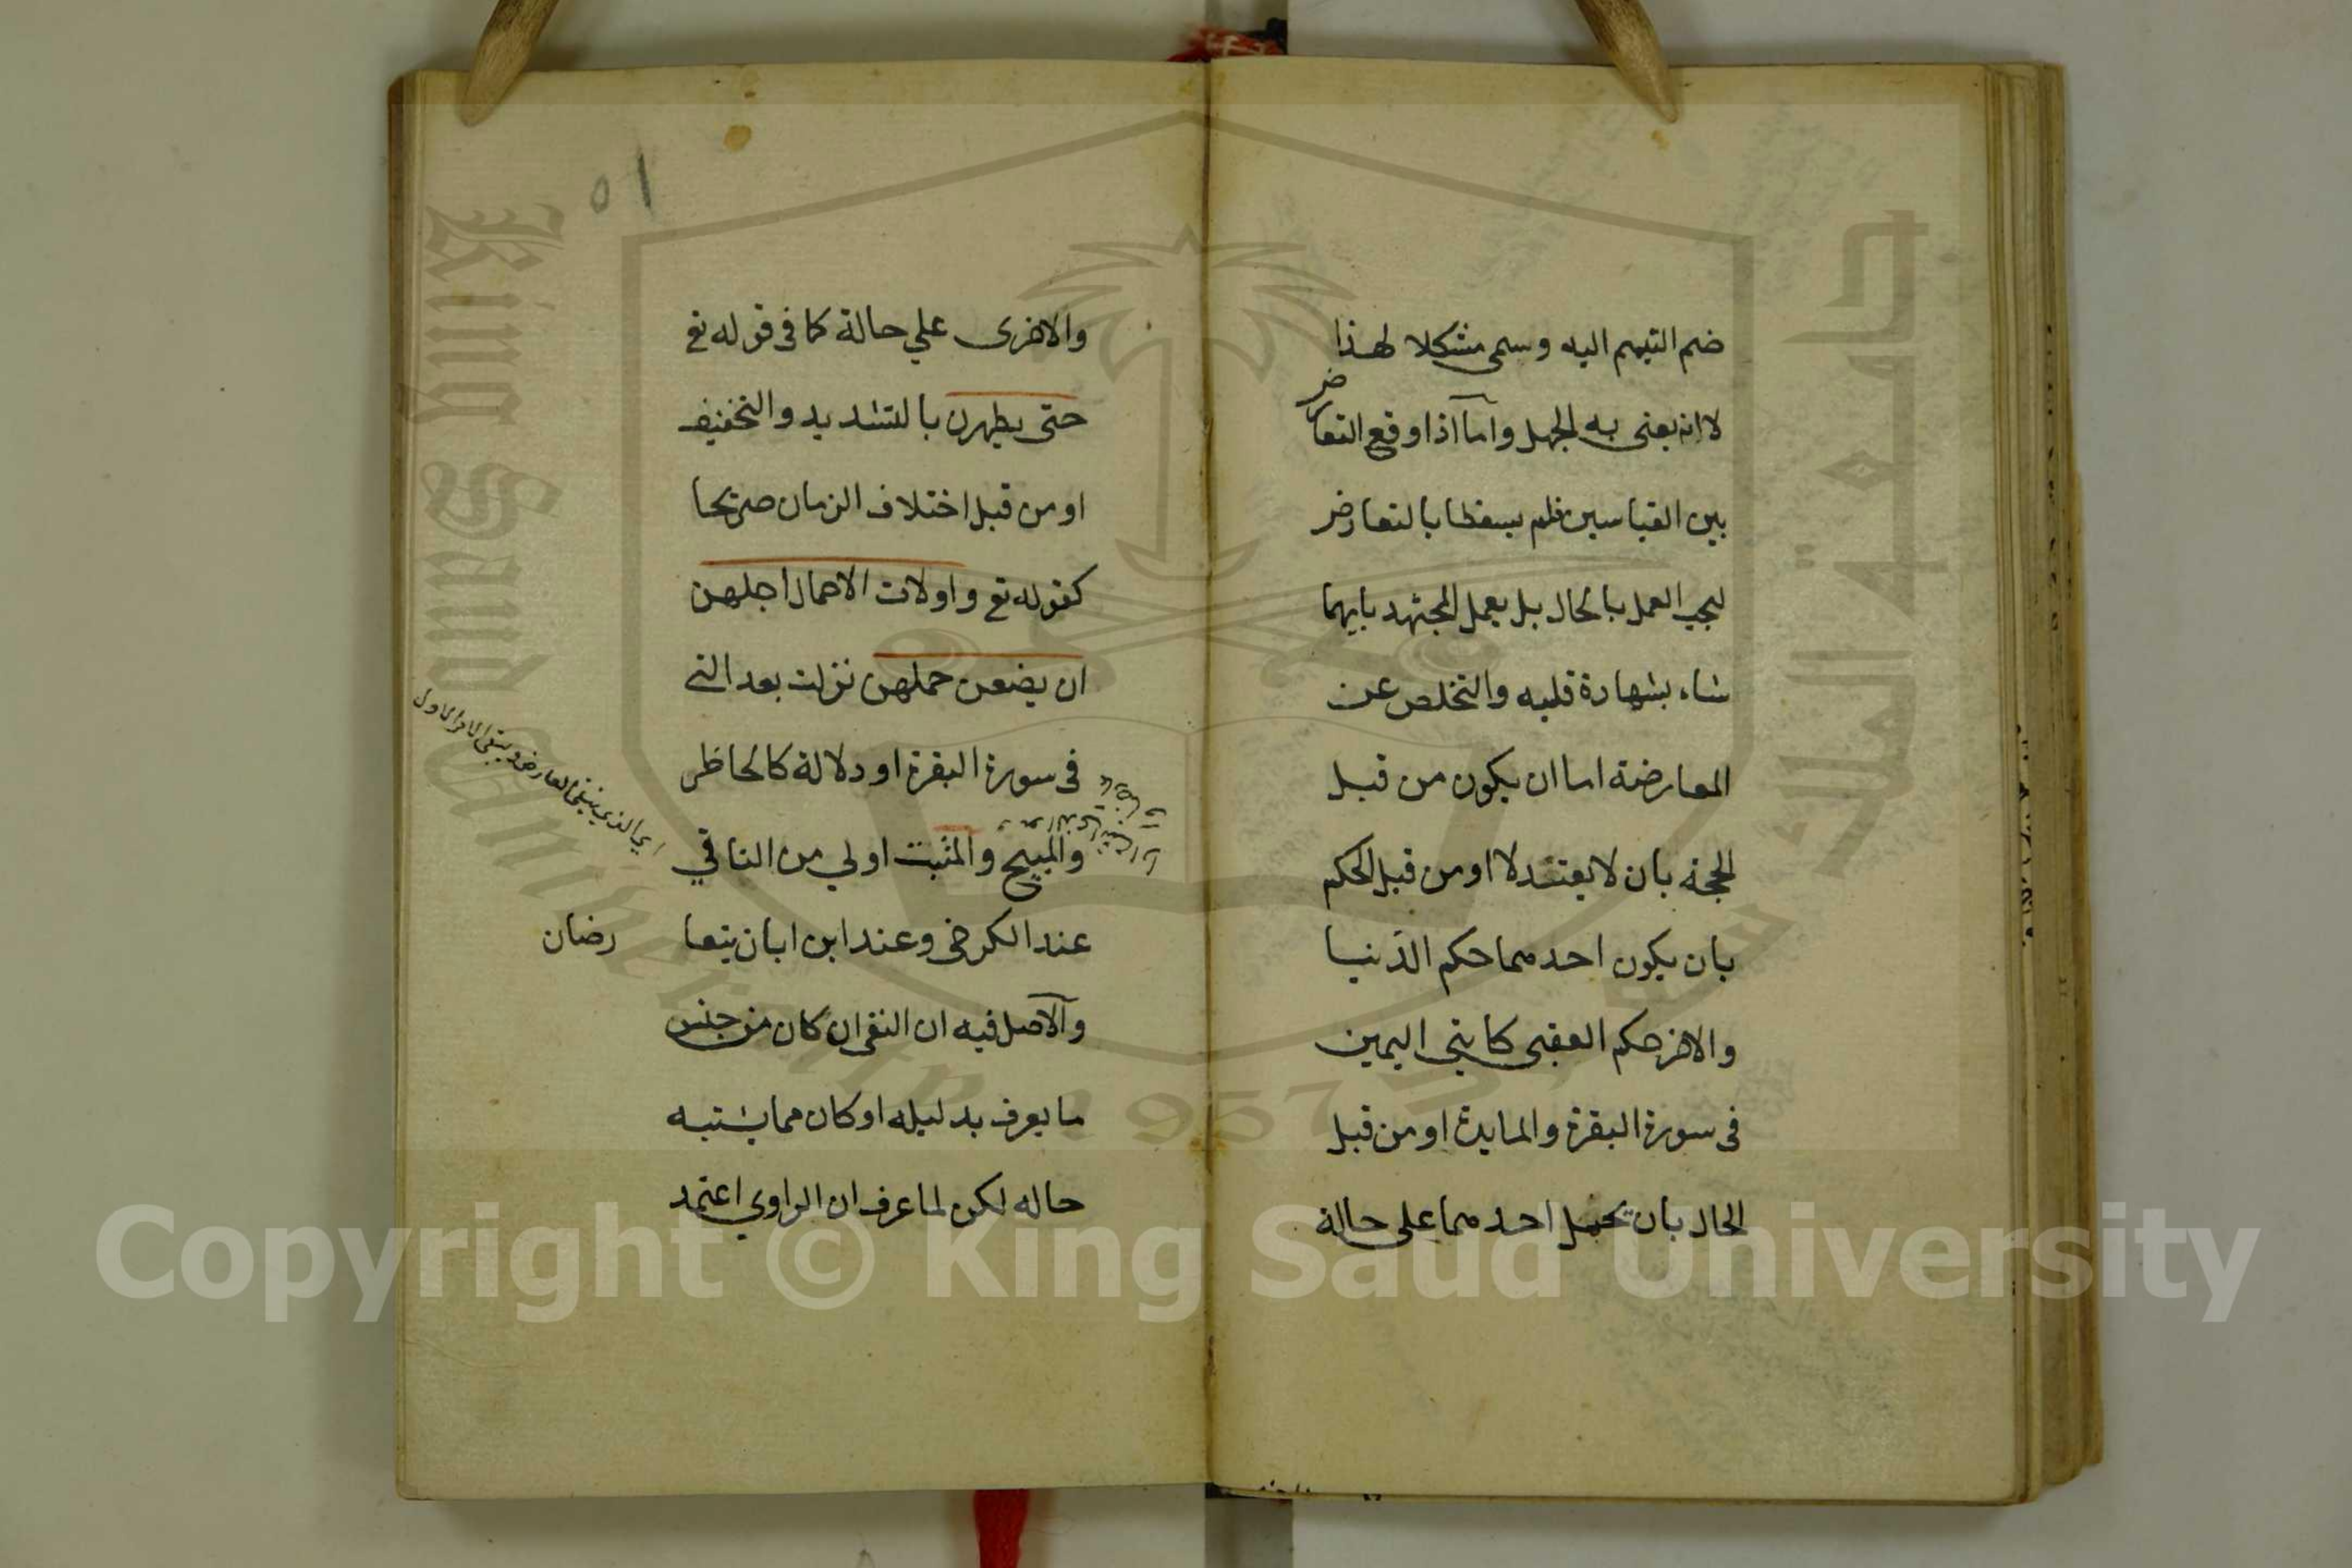 ضم التيمم اليه وسمى مشكلا لهذا
لا انه يعنى به الجهل واما اذا وقع التعارض
بين القياسين فلم يسقطا بالتعارض
ليجب العمل بالحال بل يعمل المجتهد بايهما
شاء بشهادة قلبه والتخلص عن
المعارضة اما ان يكون من قبل
الحجة بان لا يعتدلا او من قبل الحكم
بان يكون احدهما حكم الدنيا
والاخر حكم العقبى كايتي اليمين
فى سورة البقرة والمايدة او من قبل
الحال بان يحمل احدهما على حالة
٥١
والاخرى علي حالة كما فى قوله تع
حتى يطهرن بالتشديد والتخفيف
او من قبل اختلاف الزمان صريحا
كقوله تع واولات الاحمال اجلهن
ان يضعن حملهن نزلت بعد التى
فى سورة البقرة او دلالة كالحاظر
والمبيح والمثبت اولي من النافي
عند الكرخى وعند ابن ابان يتعا رضان
والاصل فيه ان النفى ان كان من جنس
ما يعرف بدليله او كان مما يشتبه
حاله لكن لما عرف ان الراوي اعتمد
اي الذي ينفى العارض ويبقى الامر الاول
King Saud University
1957
جامعة الملك سعود
Copyright © King Saud University